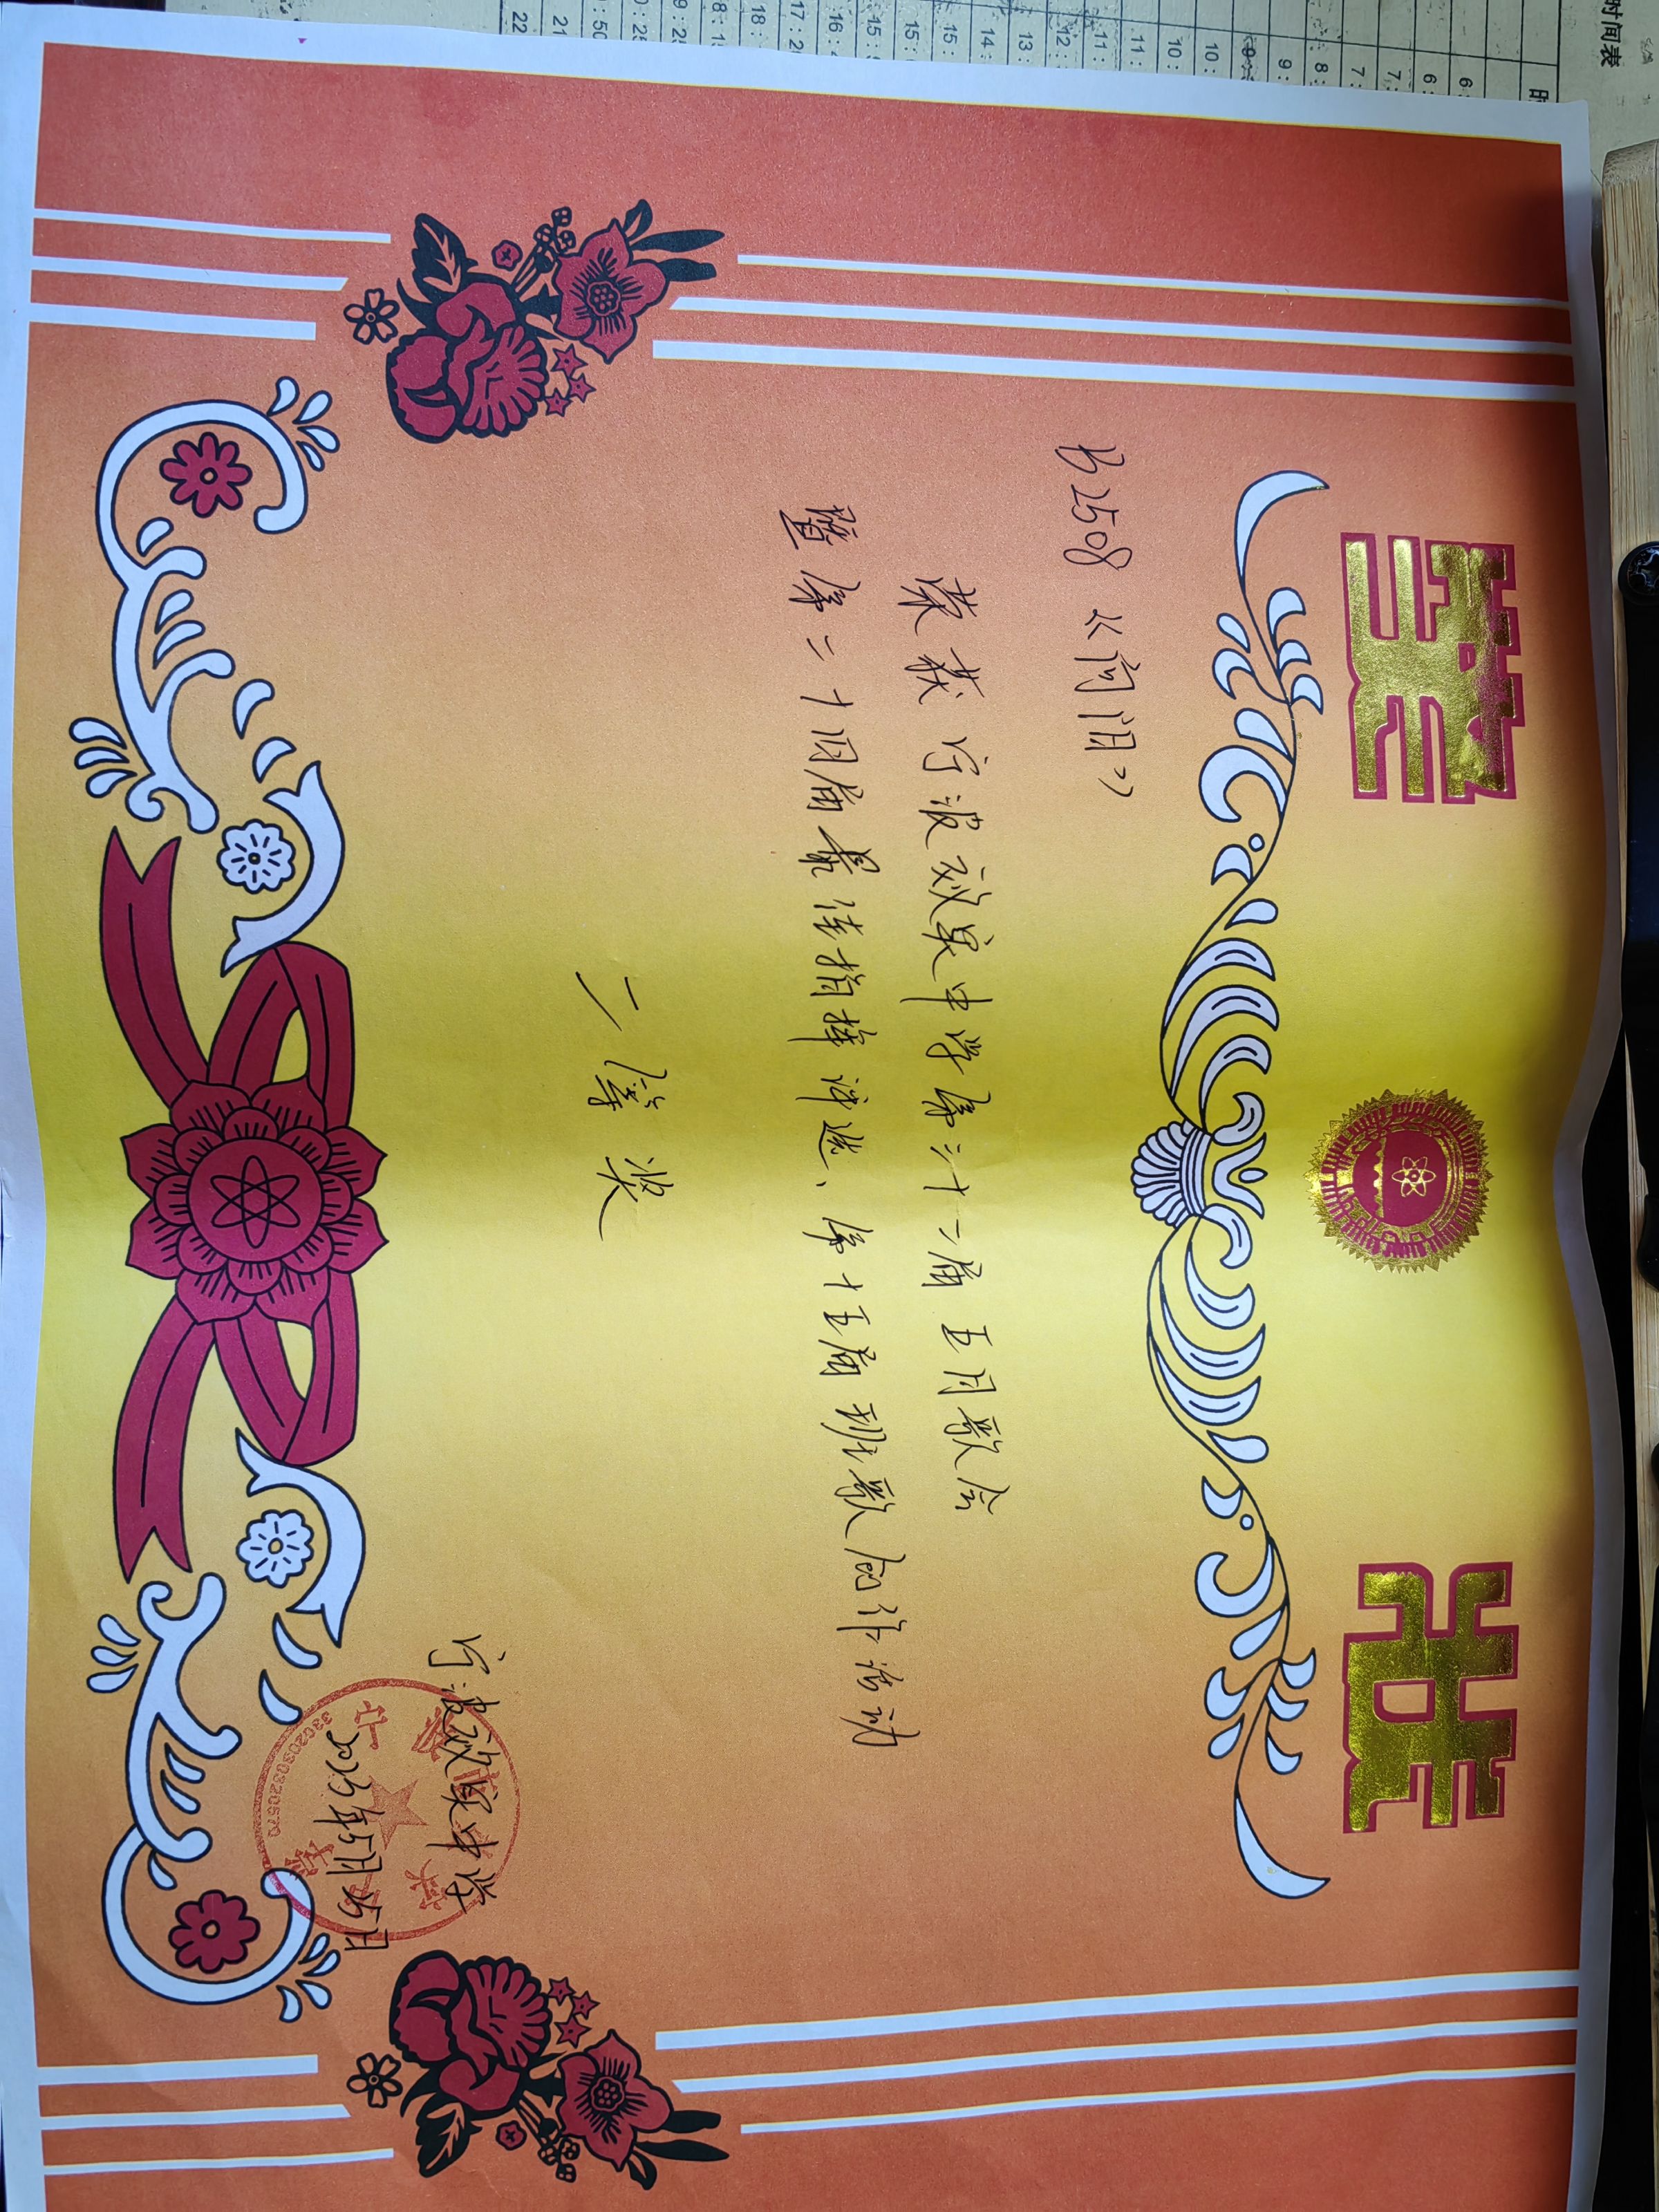 奖状
长2508《问泪》
荣获宁波效实中学第三十二届五月歌会
暨第二十四届最佳指挥评选、第十五届班歌创作活动
二等奖
宁波效实中学
2025年5月25日
3302030320570
时间表